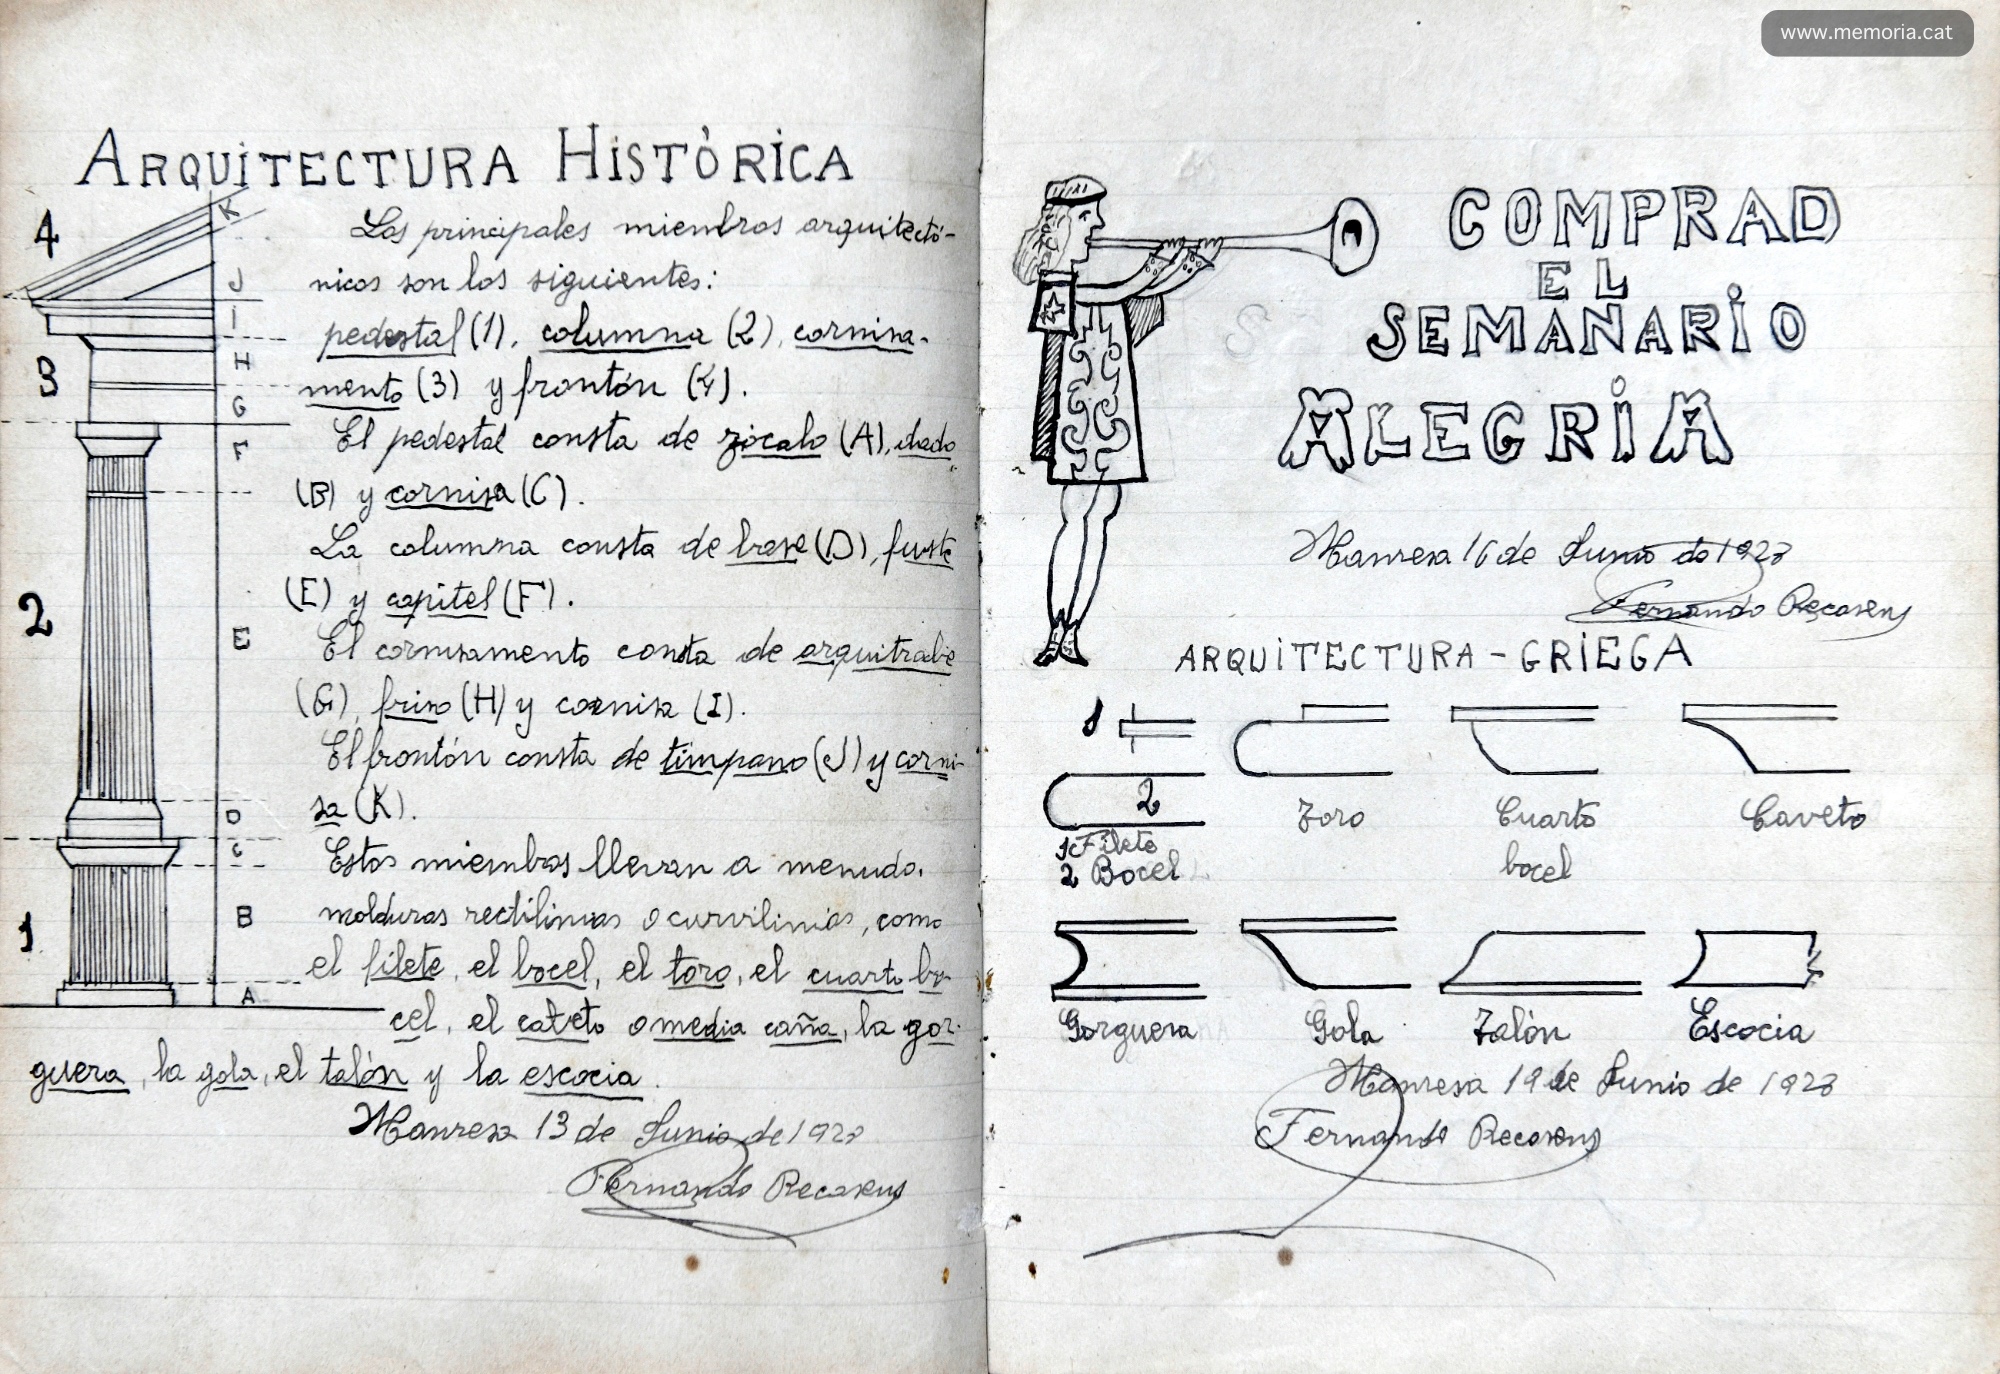 www.memoria.cat
ARQUITECTURA HISTÒRICA
Los principales miembros arquitectó-
nicos son los siguientes:
pedestal (1), columna (2), cornisa-
mento (3) y frontón (4).
El pedestal consta de zócalo (A), dado
(B) y cornisa (C).
La columna consta de base (D), fuste
(E) y capitel (F).
El cornisamento consta de arquitrabe
(G), friso (H) y cornisa (I).
El frontón consta de timpano (J) y corni-
sa (K).
Estos miembros llevan a menudo.
molduras rectilinias o curvilinias, como
el filete, el bocel, el toro, el cuarto bo-
cel, el caveto o media caña, la gor-
guera, la gola, el talón y la escocia.
Manresa 13 de Junio de 1928
Fernando Recasens
4
3
2
1
K
J
I
H
G
F
E
D
C
B
A
COMPRAD
EL
SEMANARIO
ALEGRIA
Manresa 16 de Junio de 1928
Fernando Recasens
ARQUITECTURA - GRIEGA
1
2
1 Filete
2 Bocel
Toro
Cuarto
bocel
Caveto
Gorguera
Gola
Talón
Escocia
Manresa 19 de Junio de 1928
Fernando Recasens